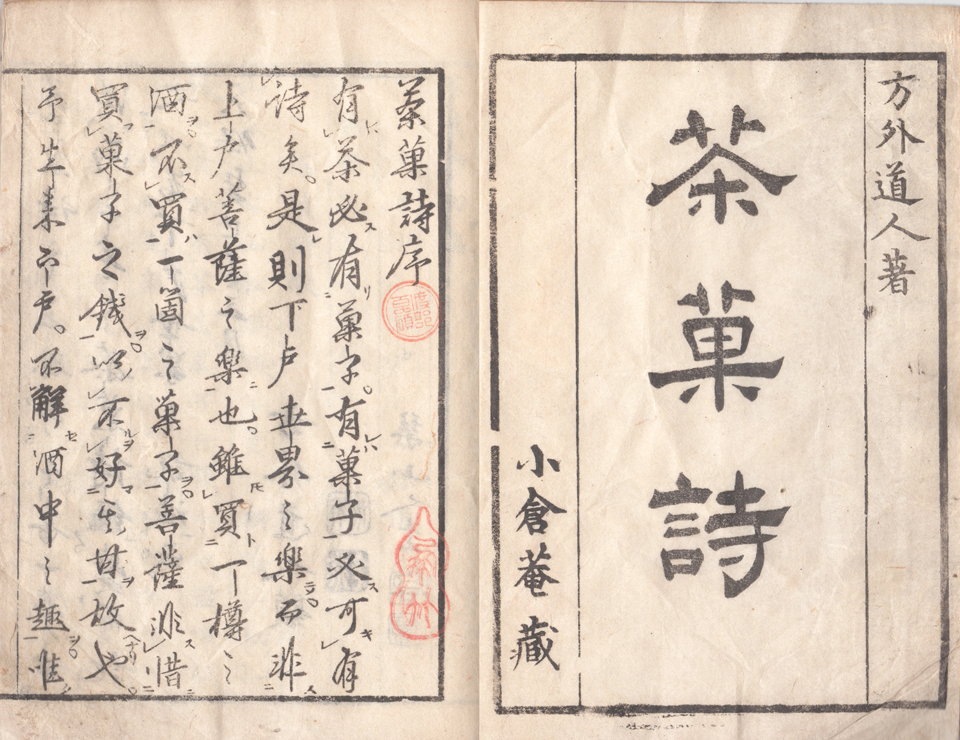 方外道人著
茶菓詩
小倉菴藏
茶菓詩序
有茶必有菓子。有菓子必可有
詩矣。是則下戸世界之樂而非
上戸菩薩之樂也。雖買一樽之
酒不買一箇之菓子。菩薩非惜
買菓子之錢。以不好其甘故也。
予生來下戸。不解酒中之趣唯